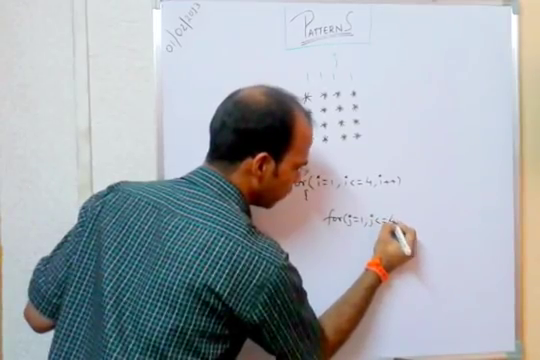 01/02/2023
PATTERNS
* * * *
* * * *
* * *
* * *
for(i=1, i<=4, i++)
{
for(j=1, j<=4